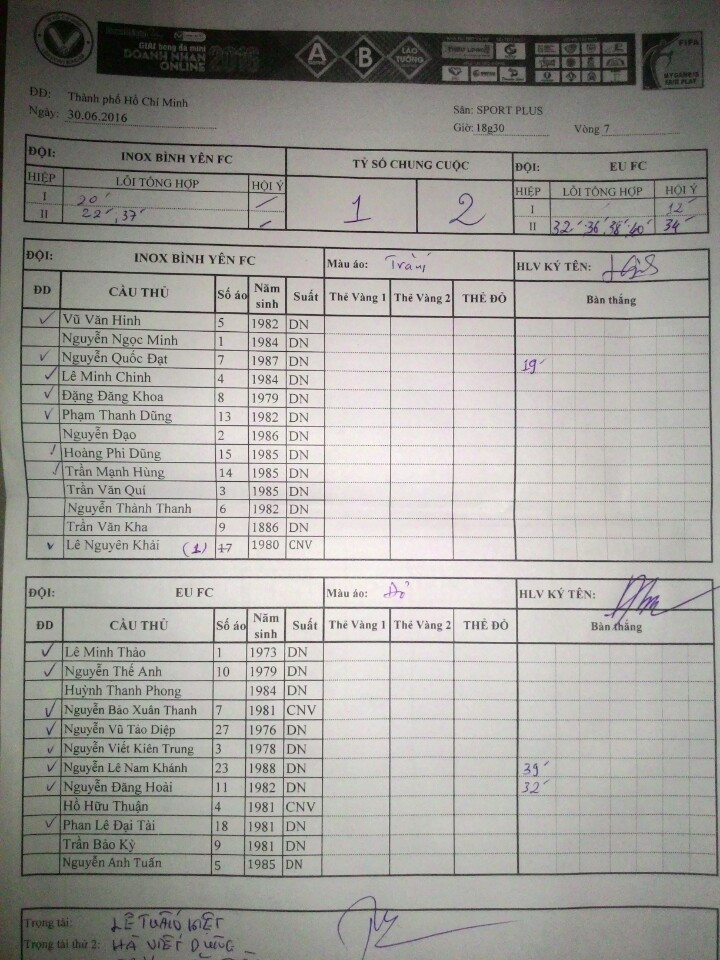 GIẢI bóng đá mini
DOANH NHÂN
ONLINE 2016
A B LÃO TƯỚNG
FIFA
MY GAME IS
FAIR PLAY
ĐĐ: Thành phố Hồ Chí Minh
Ngày: 30.06.2016
Sân: SPORT PLUS
Giờ: 18g30 Vòng 7
ĐỘI: INOX BÌNH YÊN FC TỶ SỐ CHUNG CUỘC ĐỘI: EU FC
HIỆP LỖI TỔNG HỢP HỘI Ý 1 2 HIỆP LỖI TỔNG HỢP HỘI Ý
I 20' / I 12'
II 22', 37' / II 32' 36' 38' 40' 34'
ĐỘI: INOX BÌNH YÊN FC Màu áo: Trắng HLV KÝ TÊN:
ĐD CẦU THỦ Số áo Năm sinh Suất Thẻ Vàng 1 Thẻ Vàng 2 THẺ ĐỎ Bàn thắng
✓ Vũ Văn Hinh 5 1982 DN
Nguyễn Ngọc Minh 1 1984 DN
✓ Nguyễn Quốc Đạt 7 1987 DN 19'
✓ Lê Minh Chinh 4 1984 DN
✓ Đặng Đăng Khoa 8 1979 DN
✓ Phạm Thanh Dũng 13 1982 DN
Nguyễn Đạo 2 1986 DN
✓ Hoàng Phi Dũng 15 1985 DN
✓ Trần Mạnh Hùng 14 1985 DN
Trần Văn Quí 3 1985 DN
Nguyễn Thành Thanh 6 1982 DN
Trần Văn Kha 9 1886 DN
✓ Lê Nguyên Khải (1) 17 1980 CNV
ĐỘI: EU FC Màu áo: Đỏ HLV KÝ TÊN:
ĐD CẦU THỦ Số áo Năm sinh Suất Thẻ Vàng 1 Thẻ Vàng 2 THẺ ĐỎ Bàn thắng
✓ Lê Minh Thảo 1 1973 DN
✓ Nguyễn Thế Anh 10 1979 DN
Huỳnh Thanh Phong 1984 DN
✓ Nguyễn Bảo Xuân Thanh 7 1981 CNV
✓ Nguyễn Vũ Tảo Diệp 27 1976 DN
✓ Nguyễn Viết Kiên Trung 3 1978 DN
✓ Nguyễn Lê Nam Khánh 23 1988 DN 39'
✓ Nguyễn Đăng Hoài 11 1982 DN 32'
Hồ Hữu Thuận 4 1981 CNV
✓ Phan Lê Đại Tài 18 1981 DN
Trần Bảo Kỳ 9 1981 DN
Nguyễn Anh Tuấn 5 1985 DN
Trọng tài: LÊ TUẤN KIỆT
Trọng tài thứ 2: HÀ VIẾT DŨNG